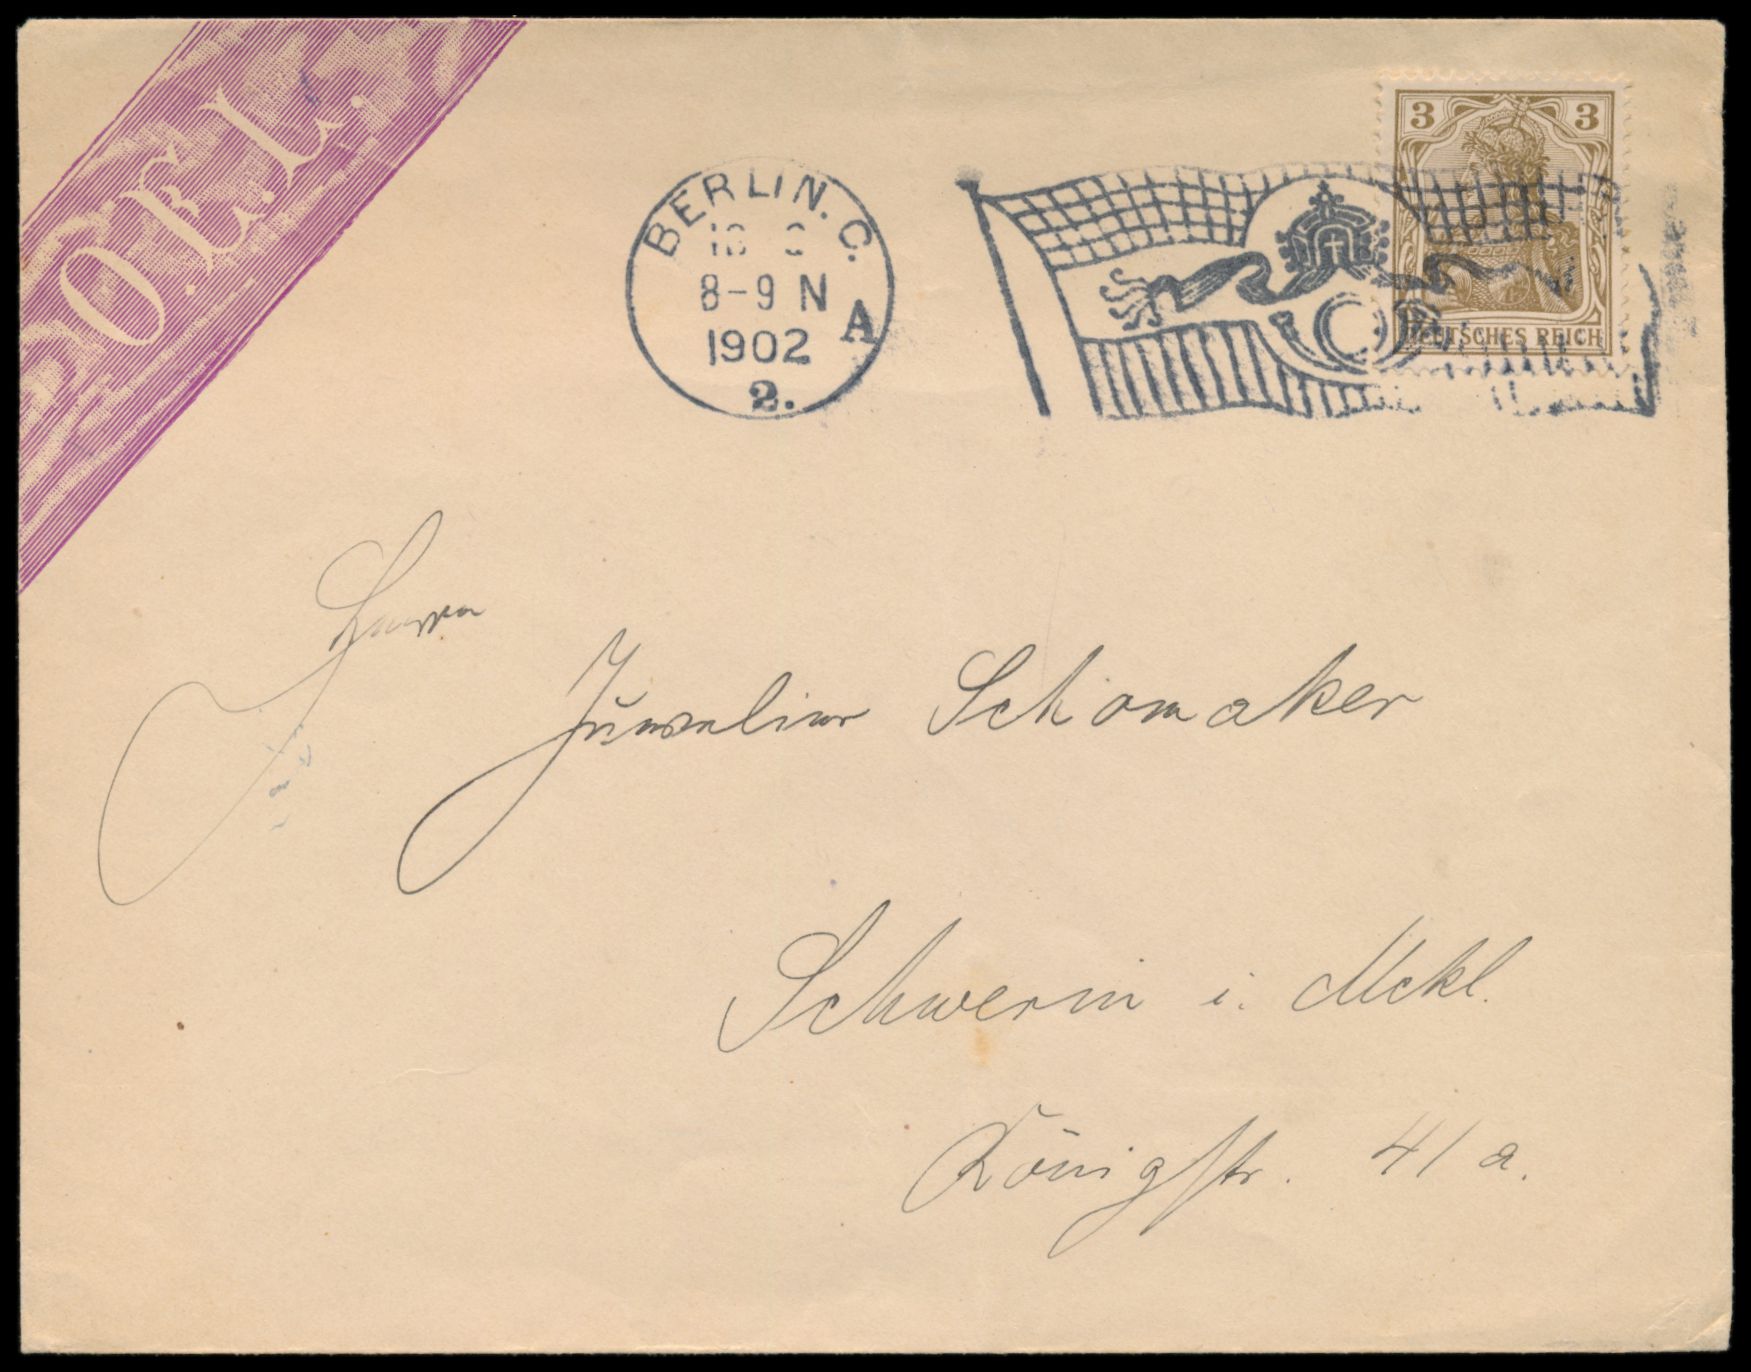 O.E.L.
3 3
BERLIN. C.
8-9 N
1902
A
2.
DEUTSCHES REICH
Herrn
Juwelier Schomaker
Schwerin i. Mckl.
Königstr. 41 a.